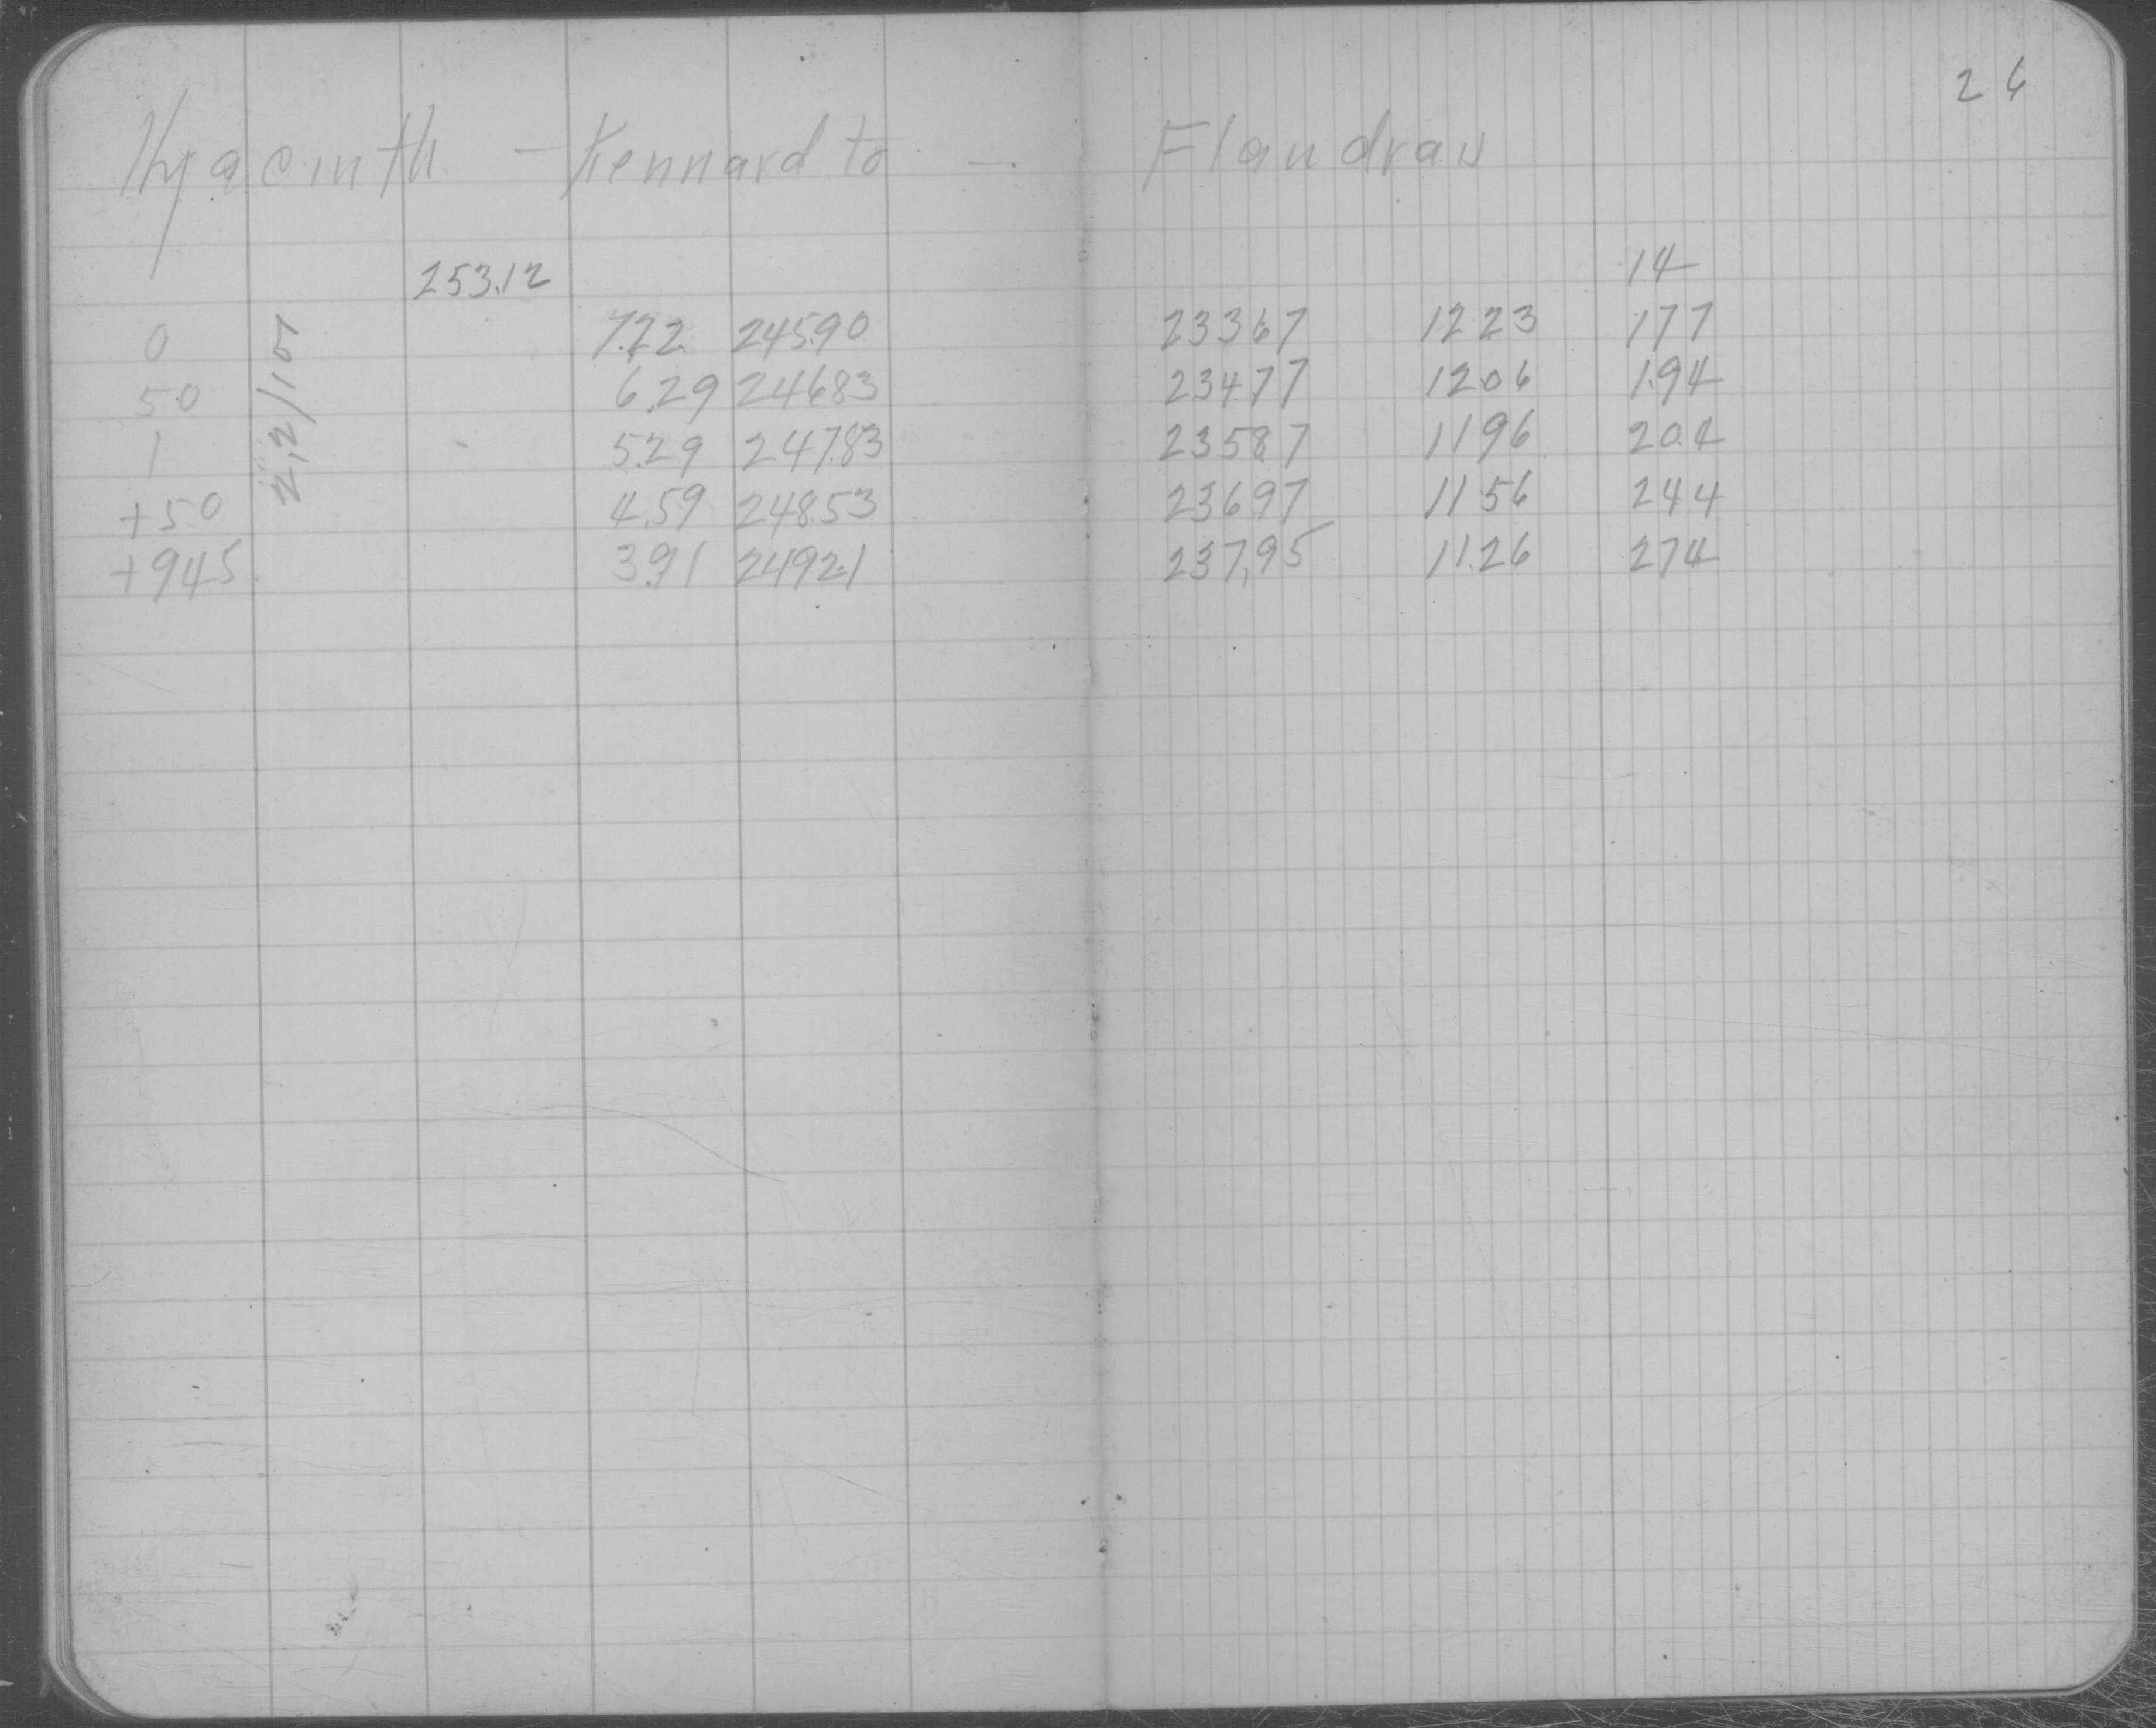 26
Hyacinth - Kennard to - Flandrau
253.12 14
0 7.22 245.90 233 67 12 23 1 77
50 6.29 246 83 234 77 12 06 1.94
1 5.29 247.83 235 87 11 96 2 0.4
+50 4.59 248.53 236 97 11 56 2 44
+94.5 3.91 249.21 237.95 11.26 2 74
2.2/100